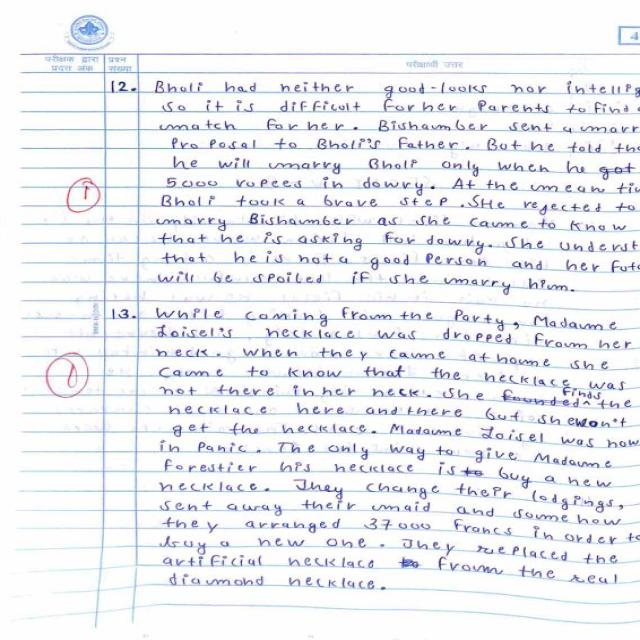 4
परीक्षक द्वारा प्रदत्त अंक
प्रश्न संख्या
परीक्षार्थी उत्तर
12. Bholi had neither good-looks nor intellig
so it is difficult for her Parents to find a
match for her. Bishamber sent a marr
Proposal to Bholi's Father. But he told tha
he will marry Bholi only when he got
5000 rupees in dowry. At the mean tim
Bholi took a brave step. She rejected to
marry Bishamber as she came to know
that he is asking for dowry. She underst
that he is not a good person and her futu
will be spoiled if she marry him.
1
13. While coming from the Party, Madame
Loisel's necklace was dropped from her
neck. When they came at home she
came to know that the necklace was
not there in her neck. She founded finds the
necklace here and there but she won't
get the necklace. Madame Loisel was now
in Panic. The only way to give Madame
Forestier his necklace is to buy a new
necklace. They change their lodgings,
sent away their maid and some how
they arranged 37000 francs in order to
buy a new one. They replaced the
artificial necklace from the real
diamond necklace.